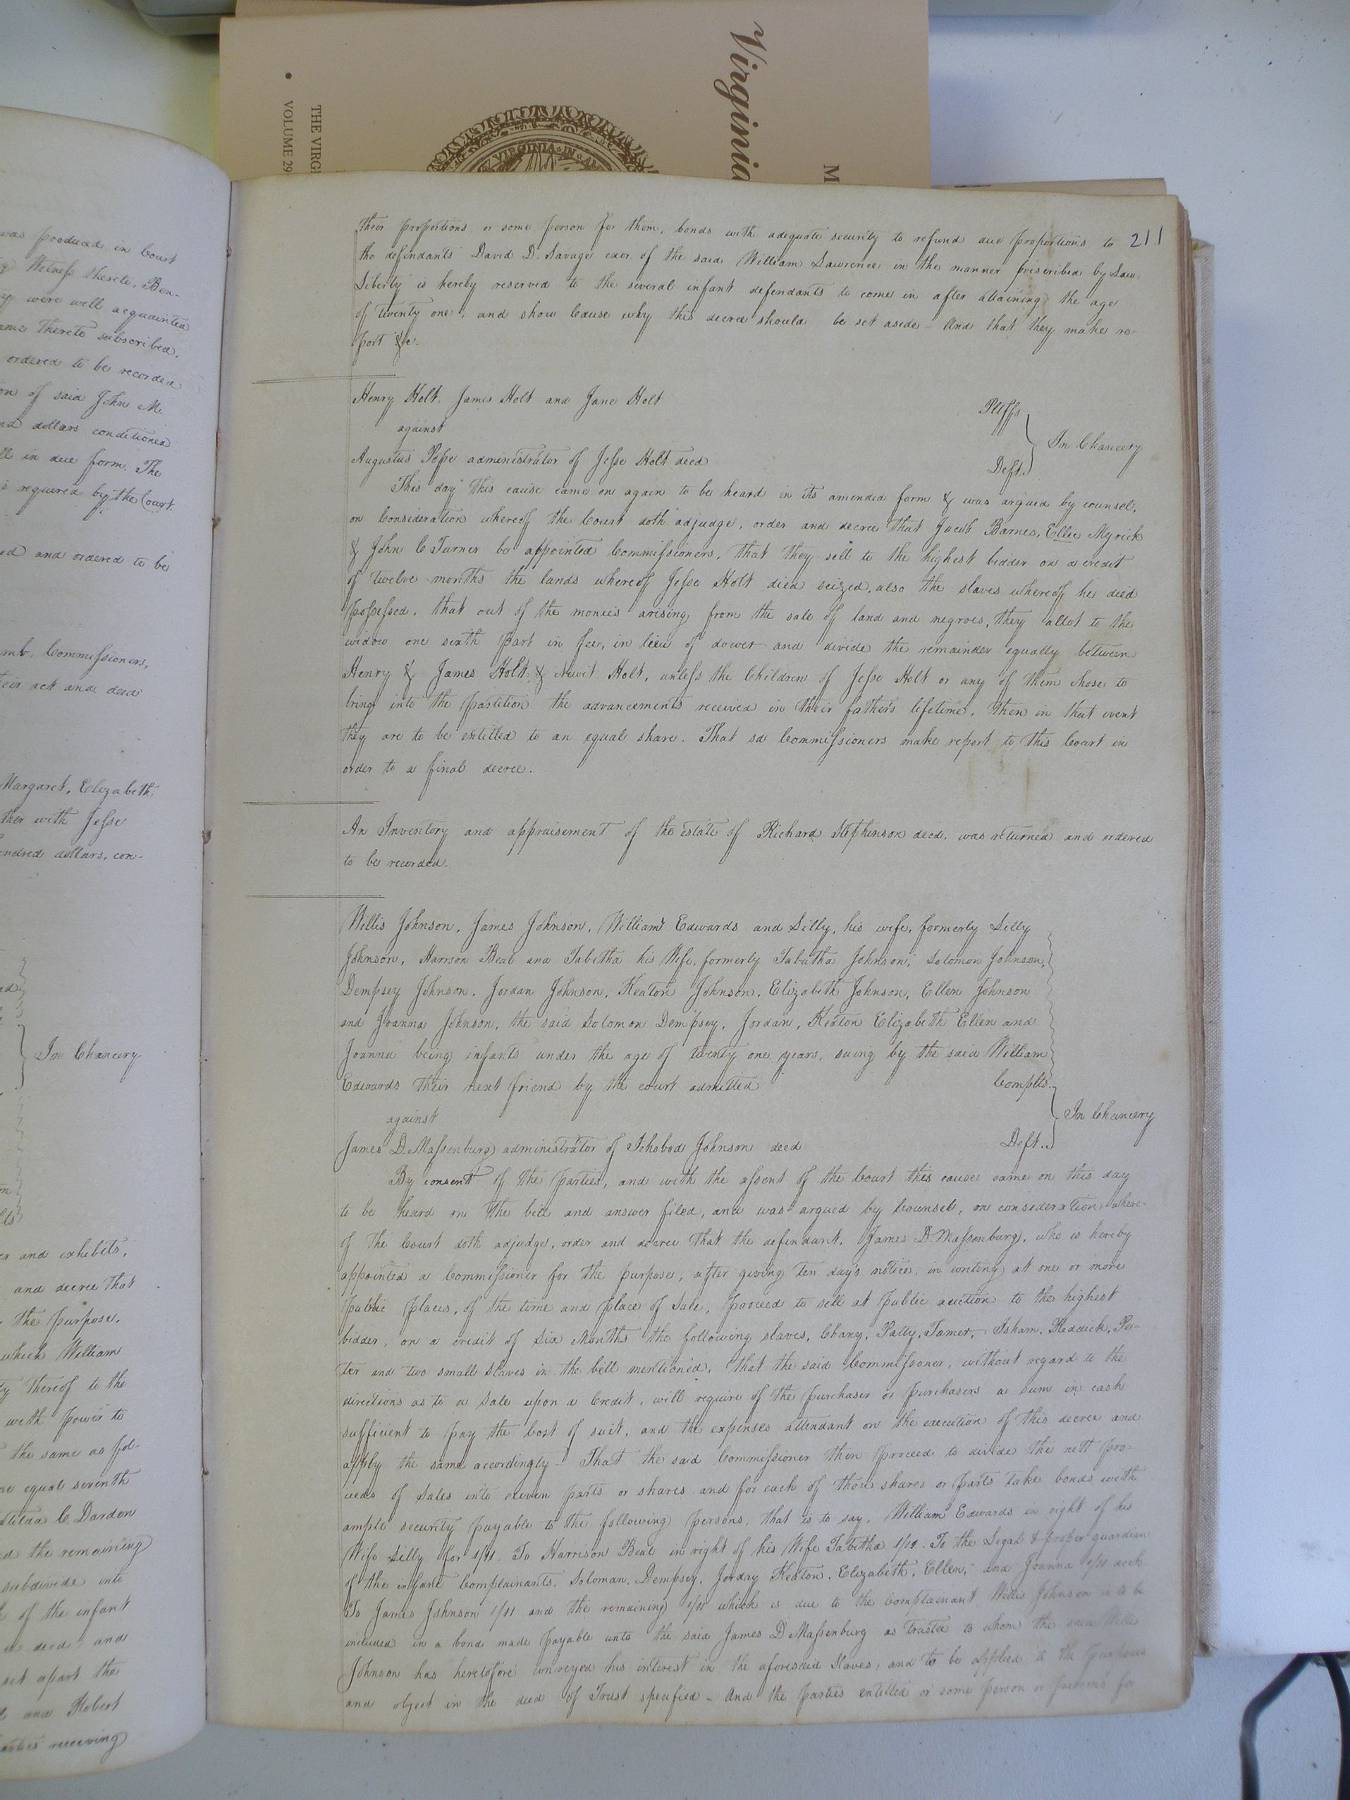 Virginia
M
THE VIRG
VOLUME 29
VIRGINIA IN
211
was produced in Court
Witness thereto, Ben-
were well acquainted
name thereto subscribed,
ordered to be recorded
on of said John M.
and dollars conditioned
ll in due form. The
is required by the Court.
ed and ordered to be
Commissioners,
their act and deed
Margaret, Elizabeth
ther with Jesse
hundred dollars, con-
In Chancery
and exhibits,
and decree that
the purpose,
which William
thereof to the
with power to
the same as fol-
equal seventh
C Dardon
the remaining
subdivide into
of the infant
deed and
set apart the
and Robert
receiving
their proportions or some person for them, bonds with adequate security to refund due proportions to
the defendants David D. Savage exer. of the said William Lawrence in the manner prescribed by Law.
Liberty is hereby reserved to the several infant defendants to come in after attaining the age
of twenty one, and show Cause why this decree should be set aside - And that they make re-
port &c.
Henry Holt, James Holt and Jane Holt Pltffs
against
In Chancery
Augustus Pope administrator of Jesse Holt decd Deft.
This day this cause came on again to be heard in its amended form & was argued by counsel,
on Consideration whereof the Court doth adjudge, order and decree that Jacob Barnes, Ellie Myrick
& John C Turner be appointed Commissioners, that they sell to the highest bidder on a credit
of twelve months the lands whereof Jesse Holt died seized, also the slaves whereof he died
possessed, that out of the monies arising from the sale of land and negroes, they allot to the
widow one sixth part in fee, in lieu of dower and divide the remainder equally between
Henry & James Holt, & Newit Holt, unless the Children of Jesse Holt or any of them chose to
bring into the partition the advancements received in their father's lifetime, then in that event
they are to be entitled to an equal share. That sd Commissioners make report to this Court in
order to a final decree.
An Inventory and appraisement of the Estate of Richard Stephinson decd, was returned and ordered
to be recorded.
Willis Johnson, James Johnson, William Edwards and Silly, his wife, formerly Silly
Johnson, Harrison Beal and Tabitha his Wife, formerly Tabitha Johnson, Solomon Johnson,
Dempsey Johnson, Jordan Johnson, Keaton Johnson, Elizabeth Johnson, Ellen Johnson
and Joanna Johnson, the said Solomon Dempsey, Jordan, Keaton Elizabeth Ellen and
Joanna being infants under the age of twenty one years, suing by the said William
Edwards their next friend by the court admitted Complts.
against
In Chancery
James D. Massenburg administrator of Ichobod Johnson decd Deft.
By consent of the Parties, and with the assent of the Court this cause came on this day
to be heard on the bill and answer filed, and was argued by Counsel, on consideration where-
of the Court doth adjudge, order and decree that the defendant, James D Massenburg, who is hereby
appointed a Commissioner for the purpose, after giving ten day's notice, in writing at one or more
public places, of the time and place of Sale, proceed to sell at public auction to the highest
bidder, on a credit of Six Months the following slaves, Chany, Patty, Tamer, Isham, Reddick, Pe-
ter and two small slaves in the bill mentioned, that the said Commissioner, without regard to the
directions as to a Sale upon a Credit, will require of the purchaser or purchasers a sum in cash
sufficient to pay the Cost of suit, and the expenses attendant on the execution of this decree and
apply the same accordingly - That the said Commissioner then proceed to divide the nett pro-
ceeds of Sales into eleven parts or shares and for each of those shares or parts take bonds with
ample security payable to the following persons, that is to say, William Edwards in right of his
Wife Silly for 1/11. To Harrison Beal in right of his Wife Tabitha 1/11. To the Legal & proper guardian
of the infant Complainants, Soloman, Dempsey, Jorday Keaton, Elizabeth, Ellen, and Joanna 1/11 each
To James Johnson 1/11 and the remaining 1/11 which is due to the Complainant Willis Johnson is to be
included in a bond made payable unto the said James D Massenburg as trustee to whom the said Willis
Johnson has heretofore conveyed his interest in the aforesaid Slaves, and to be applied to the purposes
and object in the deed of Trust specified - And the parties entitled or some person or person's for